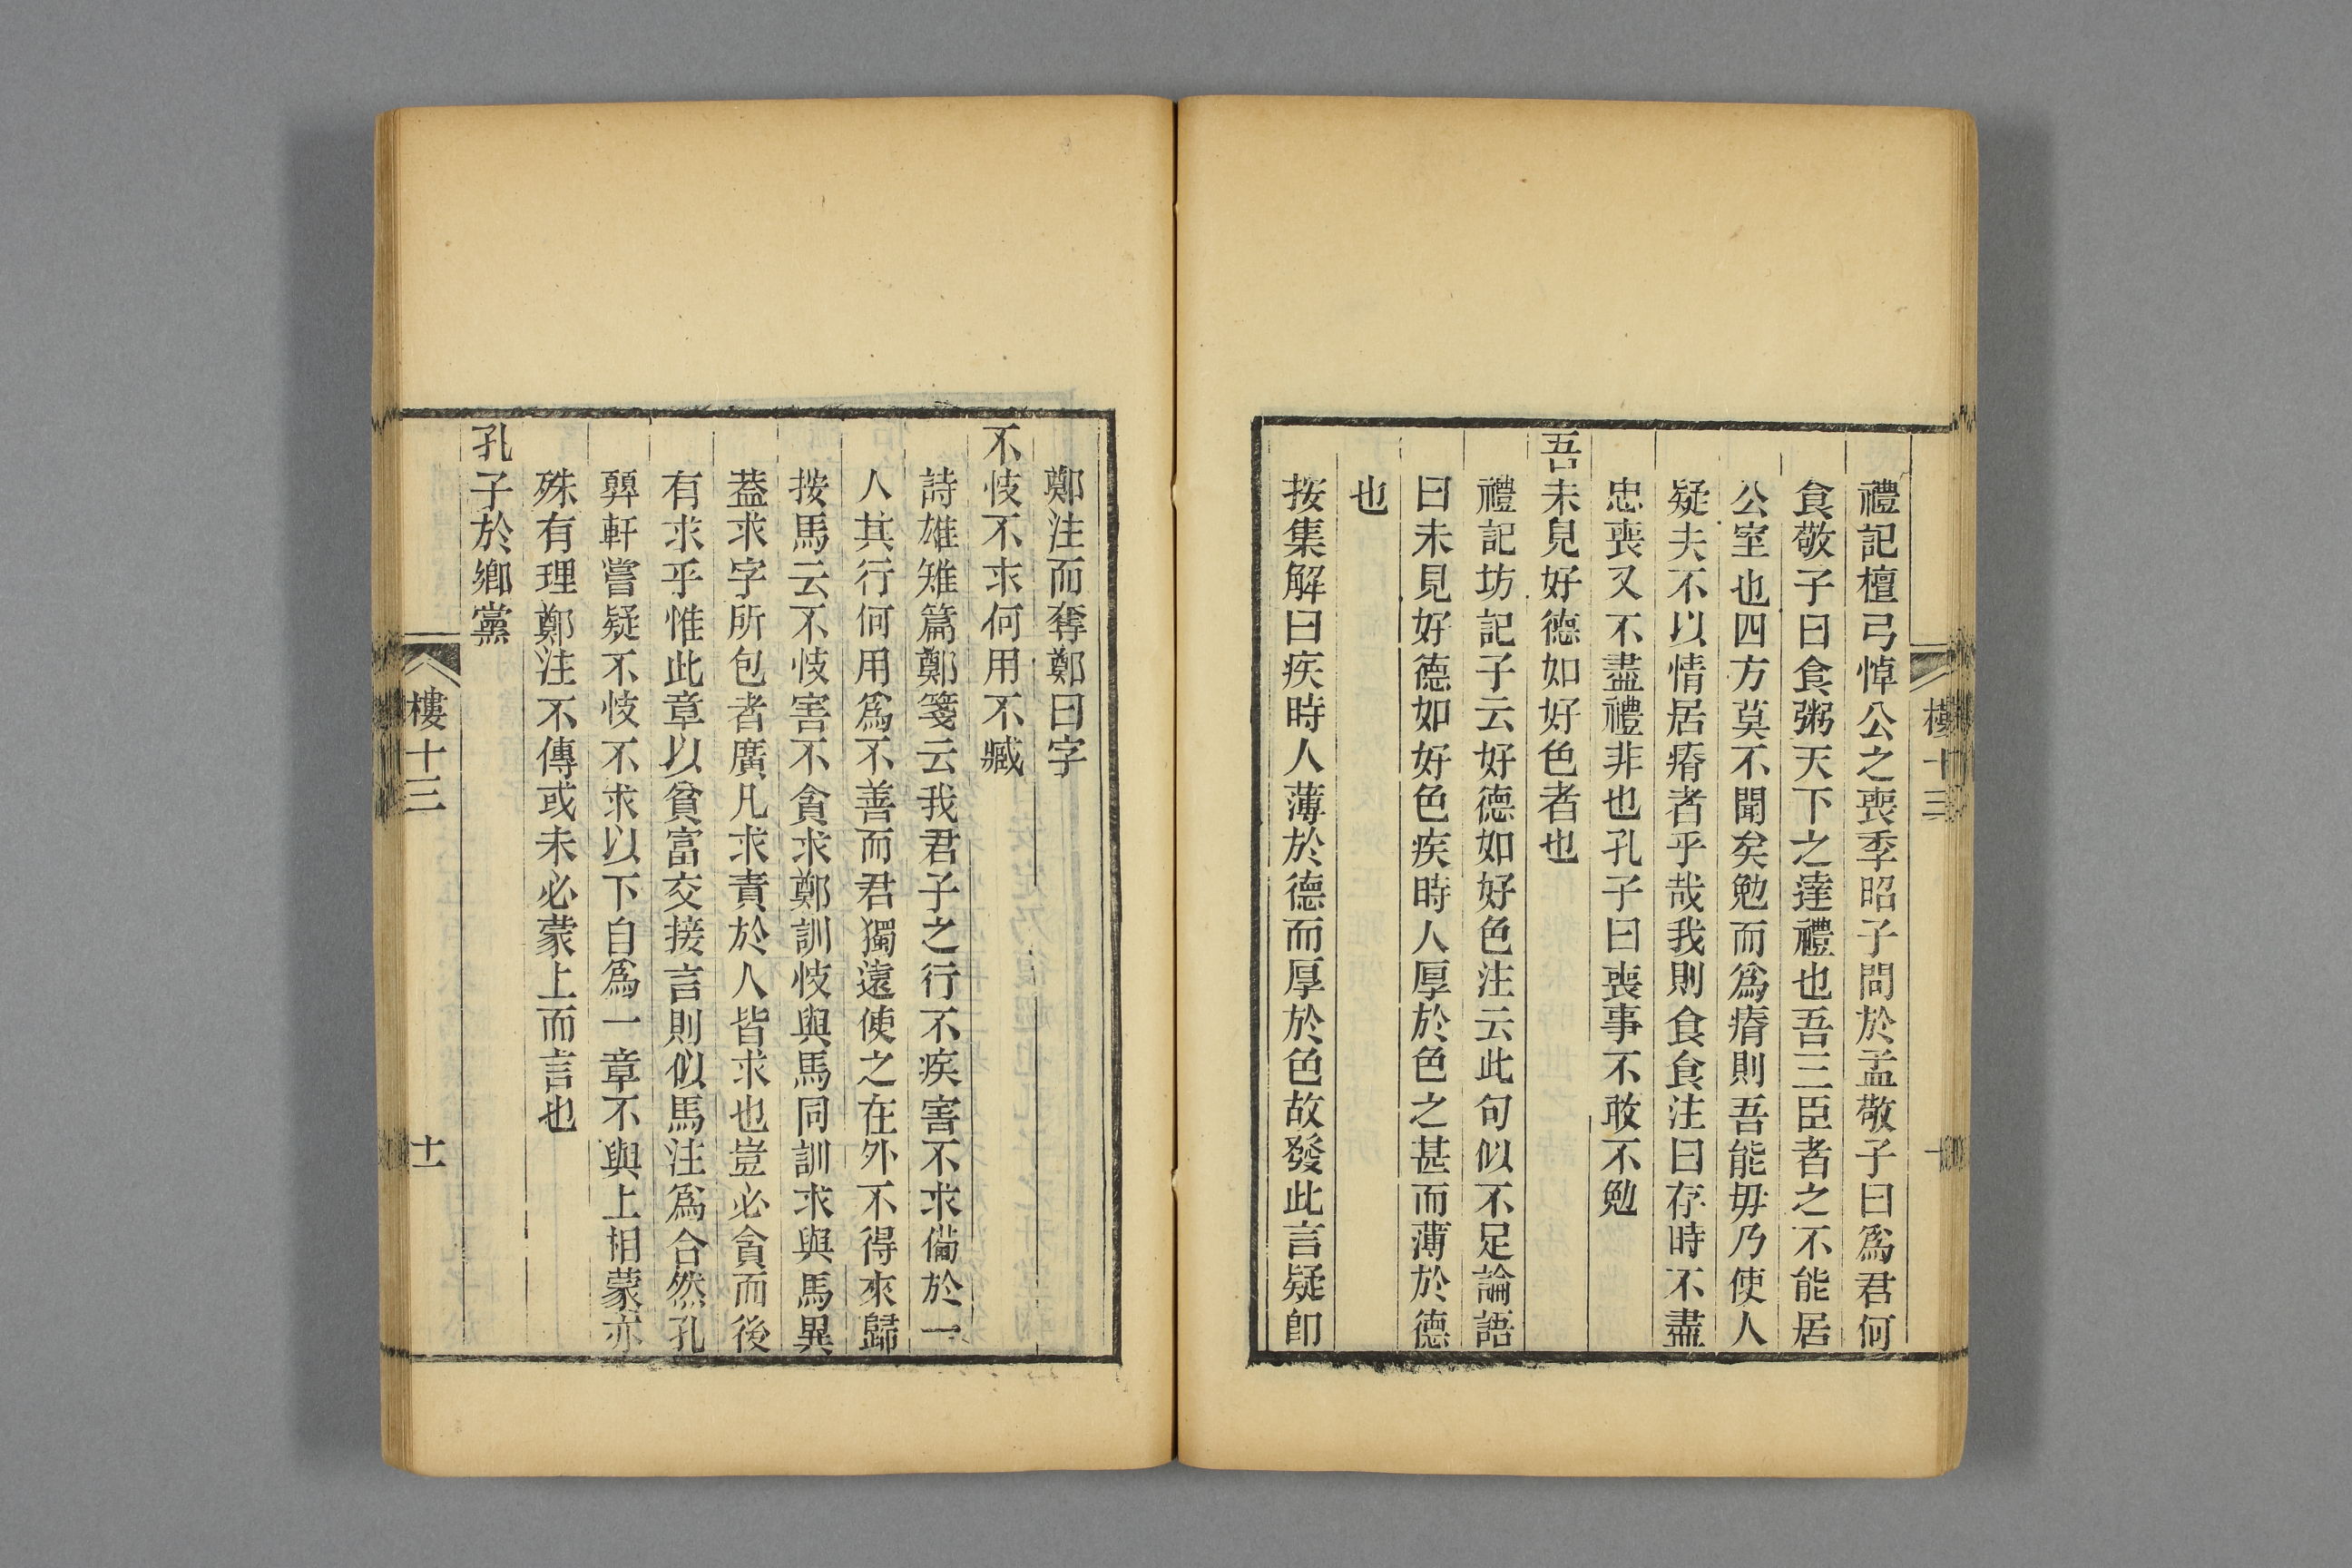 樓十三
十
禮記檀弓悼公之喪季昭子問於孟敬子曰爲君何
食敬子曰食粥天下之達禮也吾三臣者之不能居
公室也四方莫不聞矣勉而爲瘠則吾能毋乃使人
疑夫不以情居瘠者乎哉我則食食注曰存時不盡
忠喪又不盡禮非也孔子曰喪事不敢不勉
吾未見好德如好色者也
禮記坊記子云好德如好色注云此句似不足論語
曰未見好德如好色疾時人厚於色之甚而薄於德
也
按集解曰疾時人薄於德而厚於色故發此言疑卽
鄭注而奪鄭曰字
不忮不求何用不臧
詩雄雉篇鄭箋云我君子之行不疾害不求備於一
人其行何用爲不善而君獨遠使之在外不得來歸
按馬云不忮害不貪求鄭訓忮與馬同訓求與馬異
葢求字所包者廣凡求責於人皆求也豈必貪而後
有求乎惟此章以貧富交接言則似馬注爲合然孔
顨軒嘗疑不忮不求以下自爲一章不與上相蒙亦
殊有理鄭注不傳或未必蒙上而言也
孔子於鄉黨
樓十三
十一